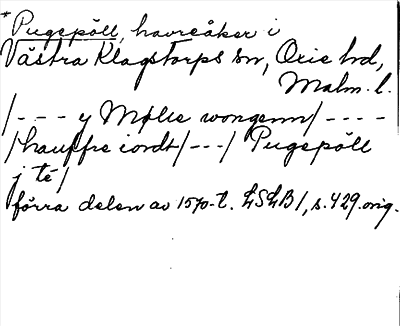 * Pugepöll, havreåker i
Västra Klagstorps sn, Oxie hd,
Malm. l.
/--- y Mølle wongenn/ ----
/hauffre iordt/---/ Pugepöll
j té/
förra delen av 1570-t. LSLB 1, s. 429. orig.